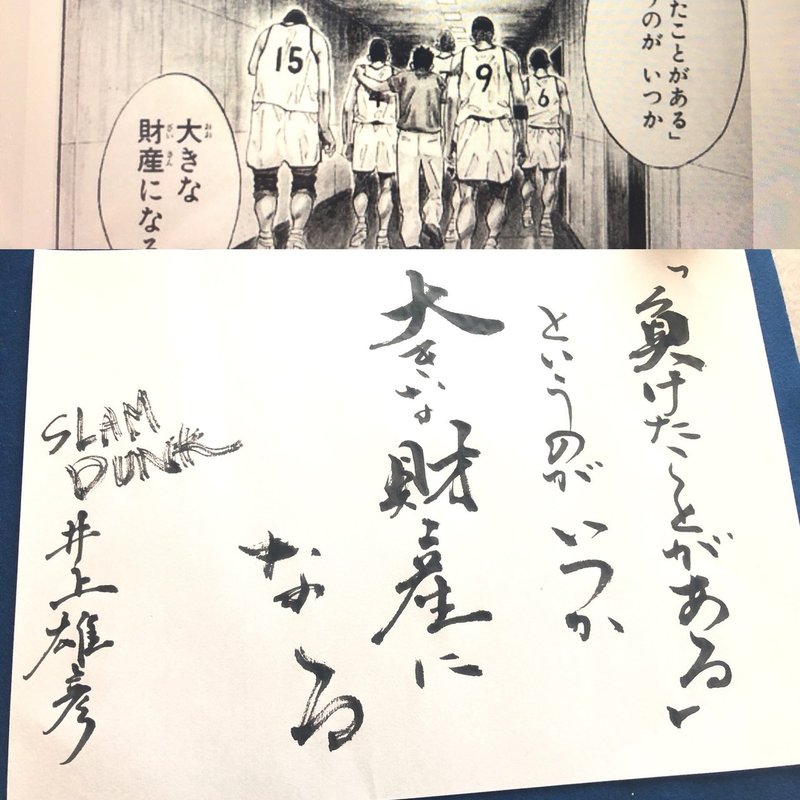 たことがある」
のが いつか
大きな
財産になる
15
4
9
6
「負けたことがある」
というのが いつか
大きな財産に
なる
SLAM
DUNK
井上雄彦